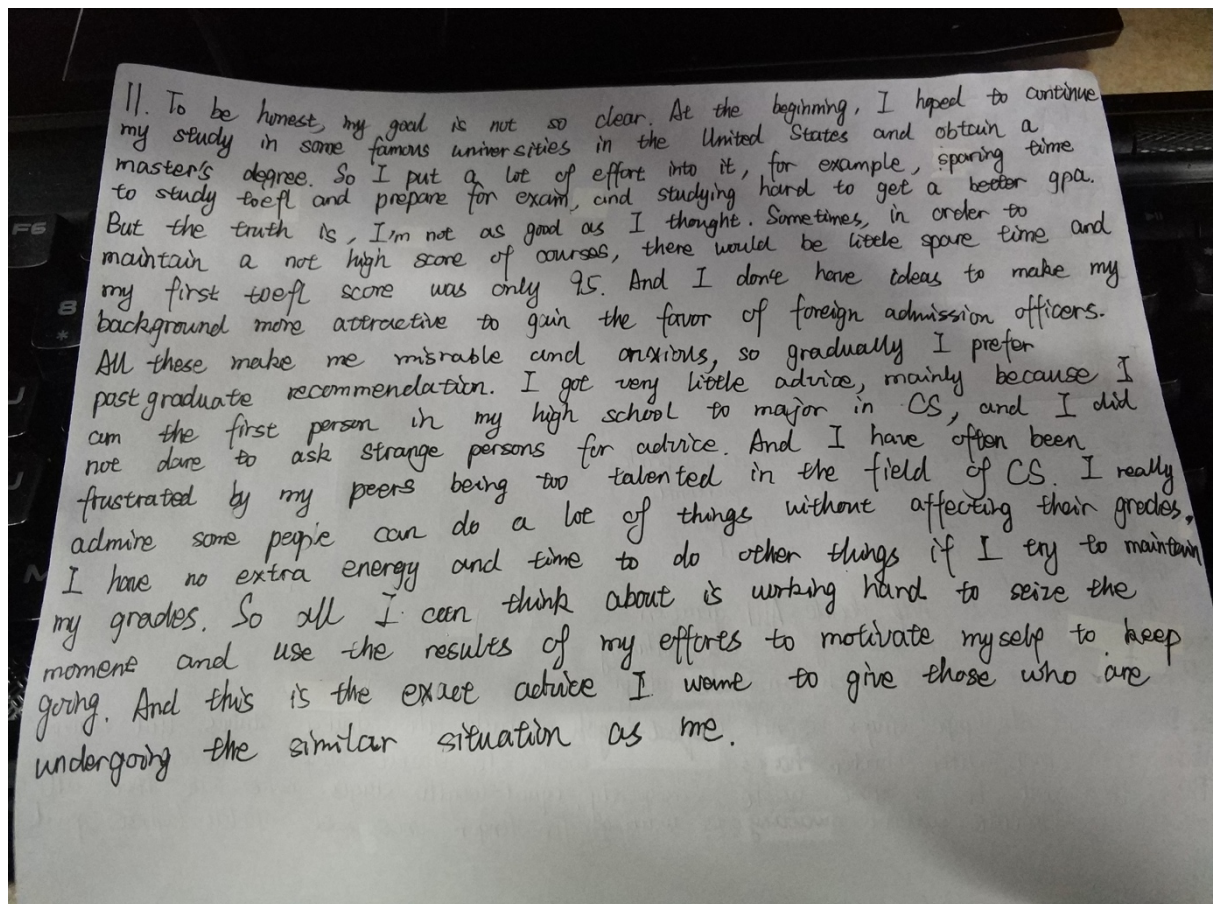 11. To be honest, my goal is not so clear. At the beginning, I hoped to continue
my study in some famous universities in the United States and obtain a
master's degree. So I put a lot of effort into it, for example, sparing time
to study toefl and prepare for exam, and studying hard to get a better gpa.
But the truth is, I'm not as good as I thought. Sometimes, in order to
maintain a not high score of courses, there would be little spare time and
my first toefl score was only 95. And I don't have ideas to make my
background more attractive to gain the favor of foreign admission officers.
All these make me misrable and anxious, so gradually I prefer
postgraduate recommendation. I got very little advice, mainly because I
am the first person in my high school to major in CS, and I did
not dare to ask strange persons for advice. And I have often been
frustrated by my peers being too talented in the field of CS. I really
admire some people can do a lot of things without affecting their grades.
I have no extra energy and time to do other things if I try to maintain
my grades. So all I can think about is working hard to seize the
moment and use the results of my efforts to motivate myself to keep
going. And this is the exact advice I want to give those who are
undergoing the similar situation as me.
F6
8
*